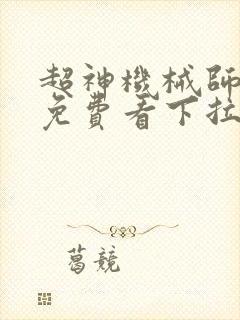 超神機械師
免費看下拉
葛競